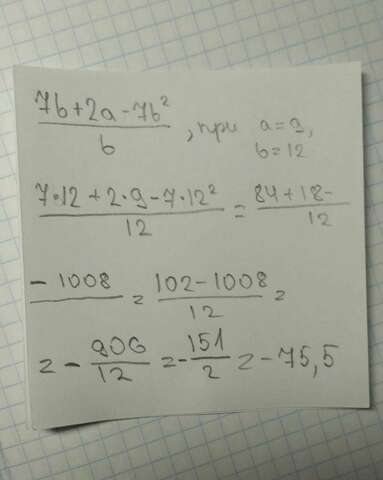 7b+2a-7b²/b, при a=9,
b=12
7·12+2·9-7·12²/12 = 84+18-/12
-1008/ = 102-1008/12 =
= -906/12 = -151/2 = -75,5